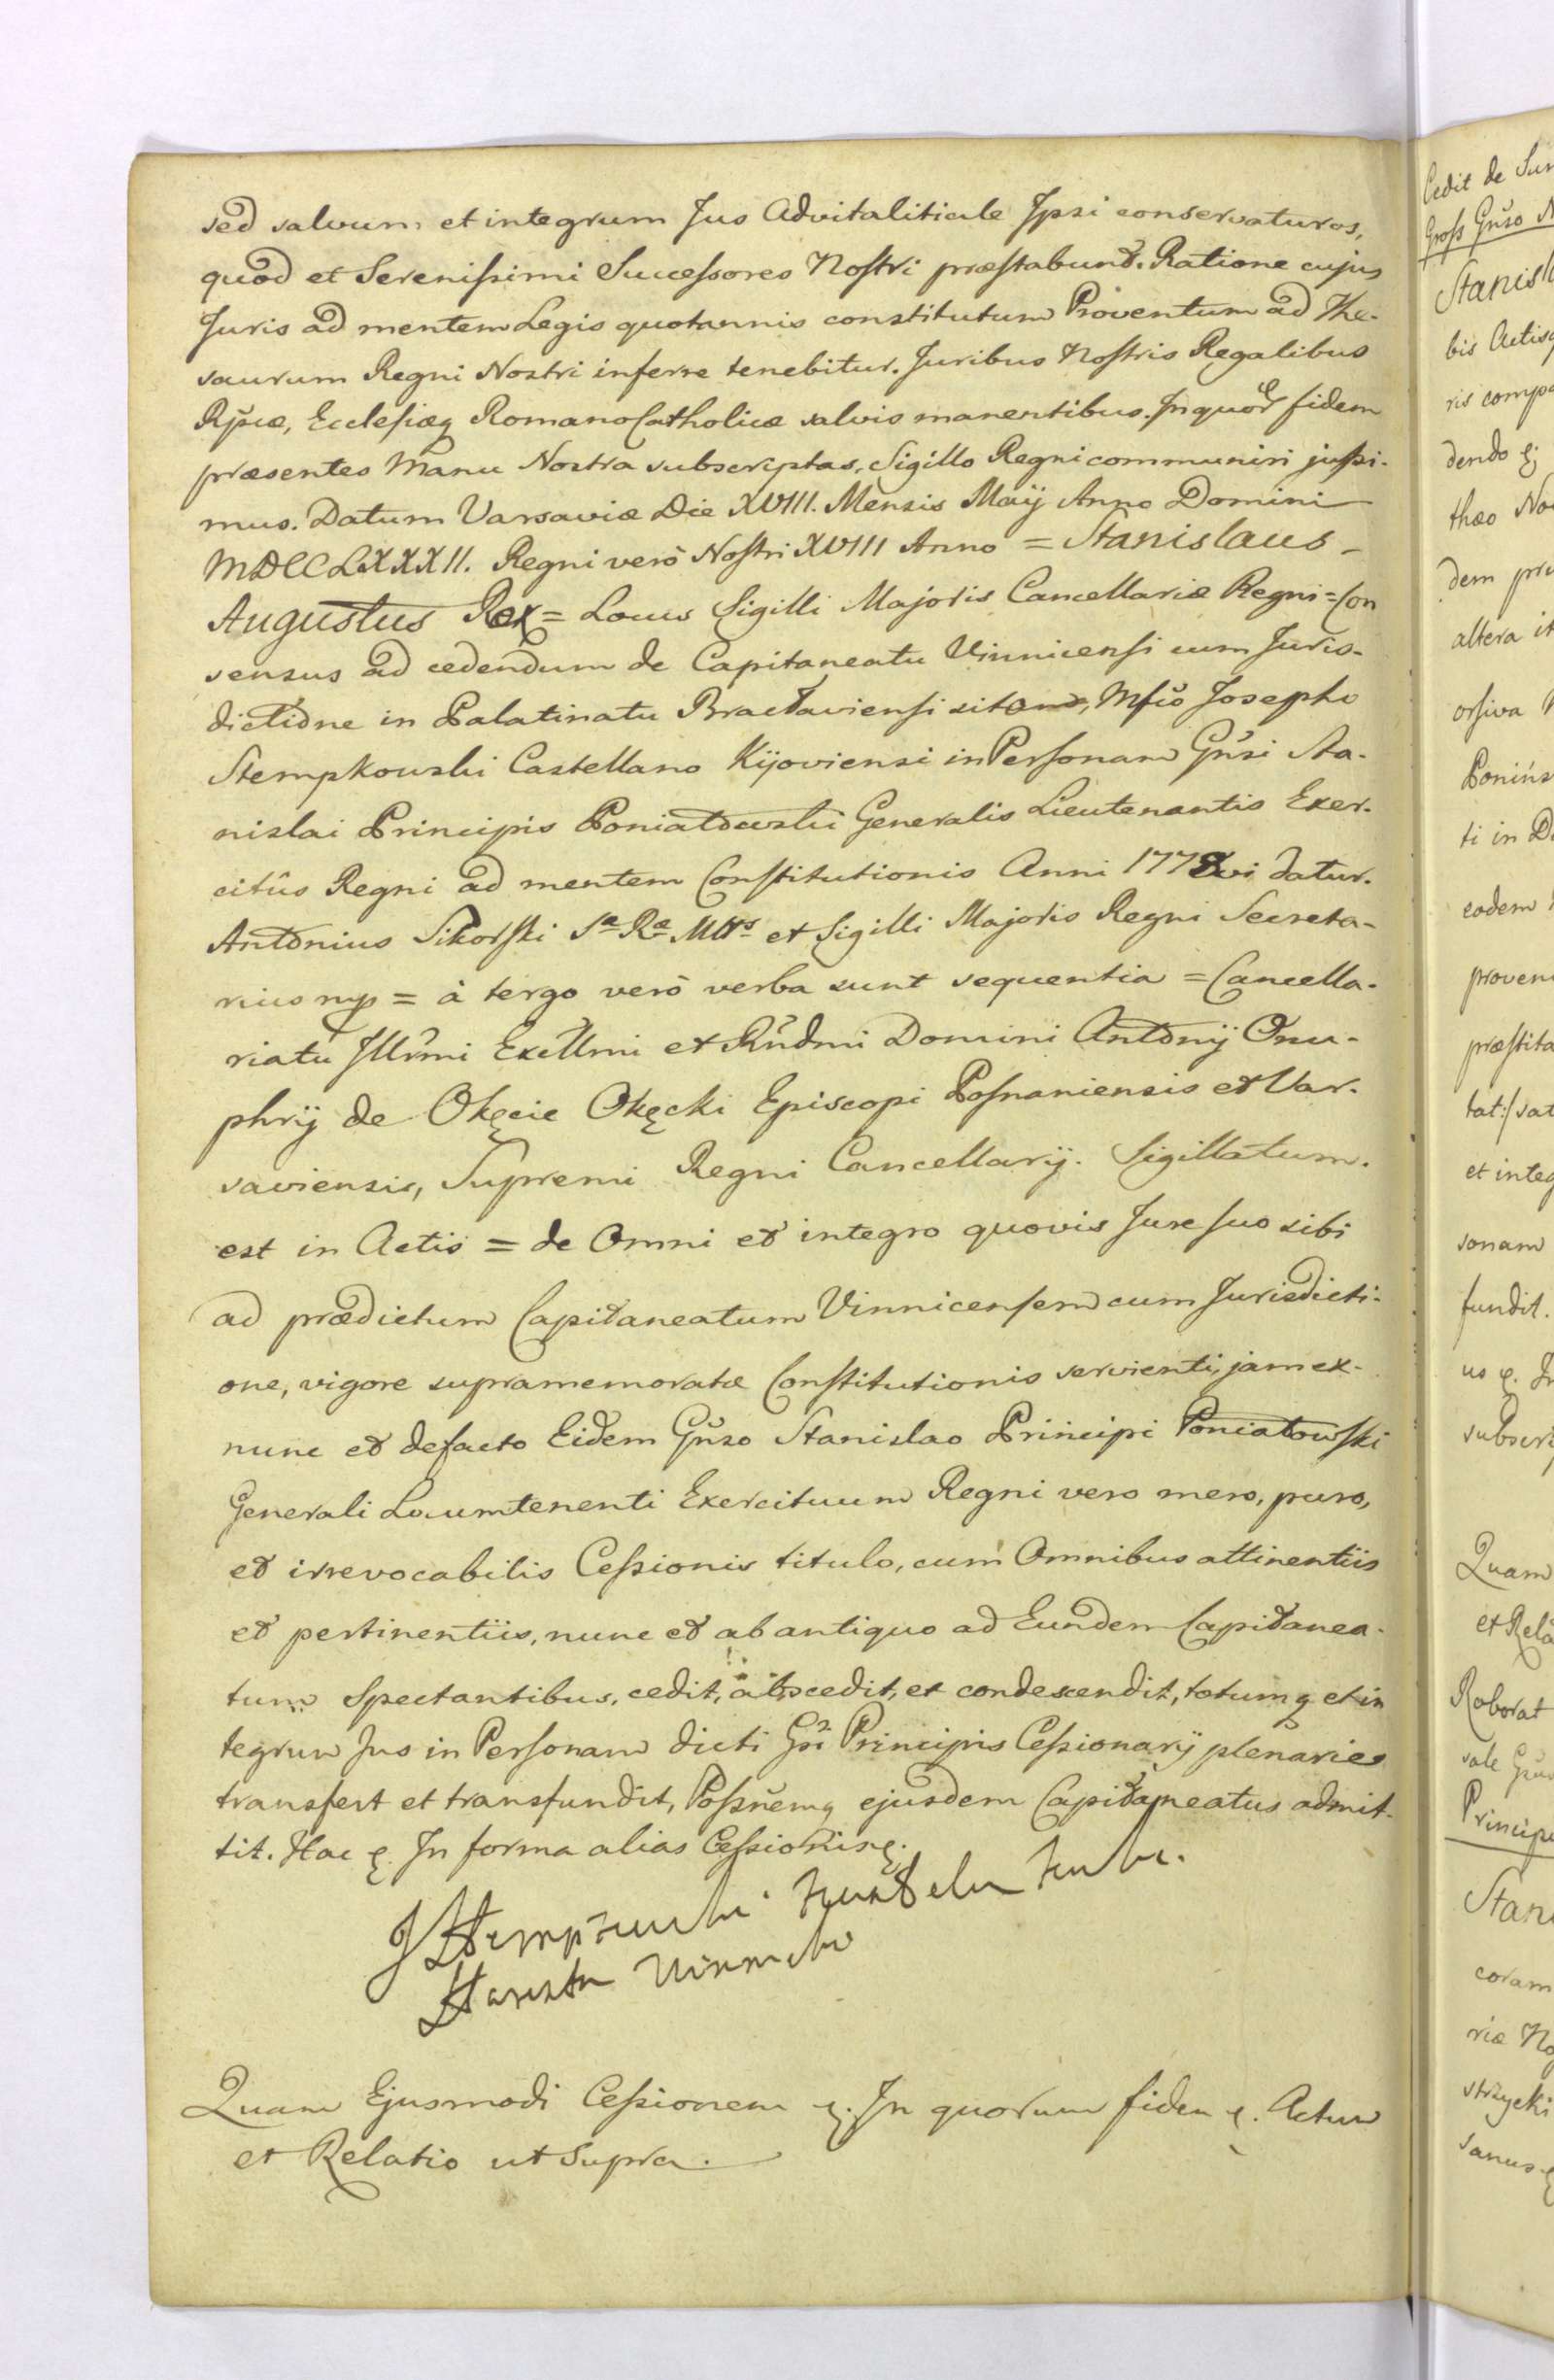 sed salvum et integrum Jus Advitalitiale Ipsi conservaturos,
quod et Serenissimi Successores Nostri præstabunt. Ratione cujus
Juris ad mentem Legis quotannis constitutum Proventum ad The-
saurum Regni Nostri inferre tenebitur. Juribus Nostris Regalibus
Rp̃cæ, Ecclesiæq Romano Catholicæ salvis manentibus. In quor fidem
præsentes Manu Nostra subscriptas, Sigillo Regni communiri jussi-
mus. Datum Varsaviæ Die XVIII. Mensis Maÿ Anno Domini
MDCCLXXXII. Regni verò Nostri XVIII Anno = Stanislaus
Augustus Rex = Locus Sigilli Majoris Cancellariæ Regni = Con
sensus ad cedendum de Capitaneatu Vinnicensi cum Juris-
dictione in Palatinatu Bractaviensi sito Mfco Josepho
Stempkowski Castellano Kijoviensi in Personam Gnsi Sta-
nislai Principis Poniatowski Generalis Lieutenantis Exer-
citûs Regni ad mentem Constitutionis Anni 1775 vi datur.
Antonius Sikorski Sæ Ræ Mttis et Sigilli Majoris Regni Secreta-
rius mp = à tergo verò verba sunt sequentia = Cancella-
riatu Illrmi Excllmi et Rndmi Domini Antonÿ Onu-
phrÿ de Okęcie Okęcki Episcopi Posnaniensis et Var-
saviensis, Supremi Regni Cancellarÿ. Sigillatum.
est in Actis = de Omni et integro quovis Jure suo sibi
ad prædictum Capitaneatum Vinnicensem cum Jurisdicti-
one, vigore supramemoratæ Constitutionis servienti, jam ex-
nunc et defacto Eidem Gnso Stanislao Principi Poniatowski
Generali Locumtenenti Exercituum Regni vero mero, puro,
et irrevocabilis Cessionis titulo, cum Omnibus attinentiis
et pertinentiis, nunc et ab antiquo ad Eundem Capitanea-
tum Spectantibus, cedit, abscedit, et condescendit, totumq et in
tegrum Jus in Personam dicti Gsi Principis Cessionarÿ plenarie
transfert et transfundit, Possnemq ejusdem Capitaneatus admit-
tit. Hac ę. In forma alias Cessionis ę.
J Stempkowski Kasztelan Kijow.
Starosta Winnicki
Quam Ejusmodi Cessionem ę. In quorum fidem ę. Actum
et Relatio ut Supra.
Cedit de Sum
Gross Gnso
Stanisl
bis Actisq
ris compa
dendo ej
thæo No
dem præ
altera it
orsiva
Ponińs
ti in D
eodem
proven
præstita
tat:/sat
et integ
sonam
fundit.
us ę. In
subscri
Quam
et Rela
Roborat
Principi
Stani
coram
riæ No
strzycki
sanus ę